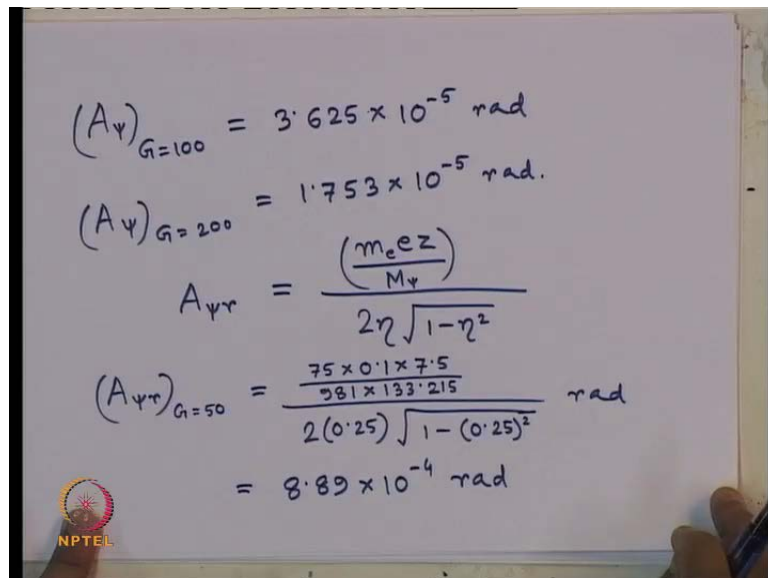 (Aψ)G=100 = 3.625 × 10⁻⁵ rad
(Aψ)G=200 = 1.753 × 10⁻⁵ rad.
Aψr = (mₑez/Mψ) / 2η√(1-η²)
(Aψr)G=50 = (75 × 0.1 × 7.5 / 981 × 133.215) / 2(0.25)√(1-(0.25)²) rad
= 8.89 × 10⁻⁴ rad
NPTEL